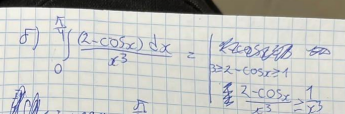 б) ∫₀^{π/4} (2-cosx) dx / x³ =
3≥2-cosx≥1
2-cosx / x³ ≥ 1 / x³
π